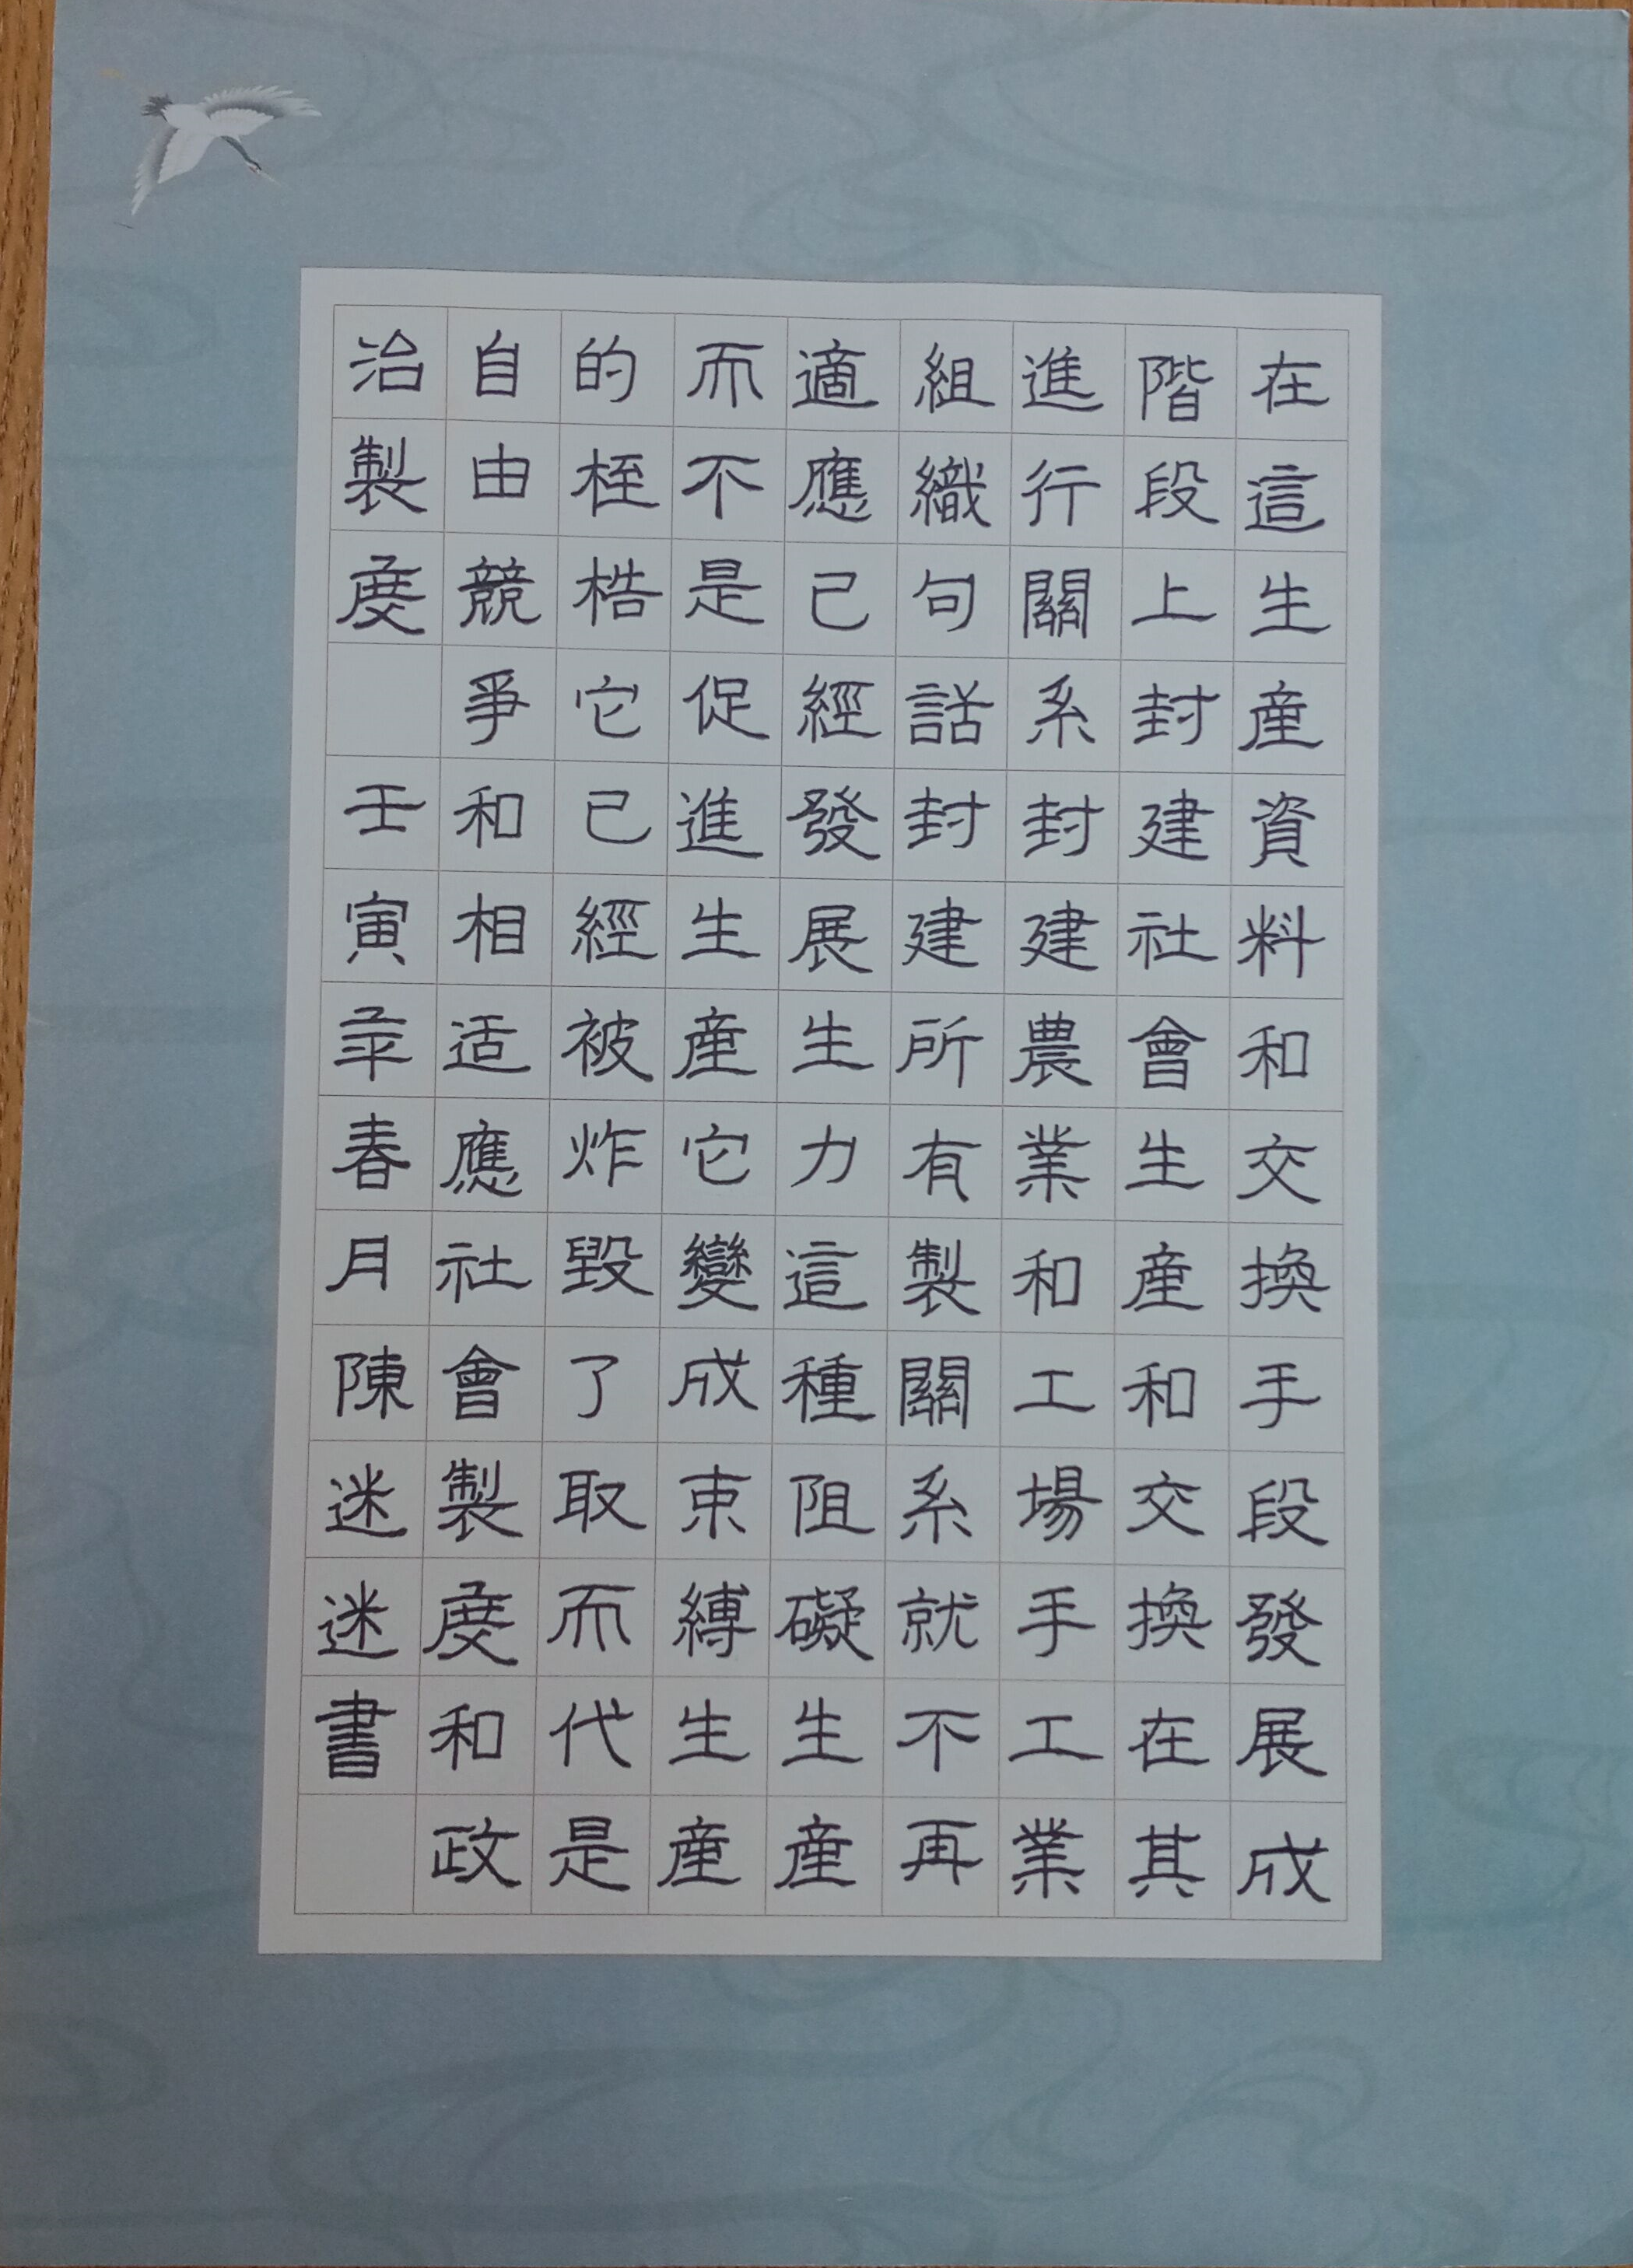 在這生産資料和交換手段發展成
階段上封建社會生産和交換在其
進行關系封建農業和工場手工業
組織句話封建所有製關系就不再
適應已經發展生生力這種阻礙生産
而不是促進生産它變成束縛生産
的桎梏它已經被炸毀了取而代是
自由競爭和相适應社會製度和政
治製度 壬寅年春月陳迷迷書